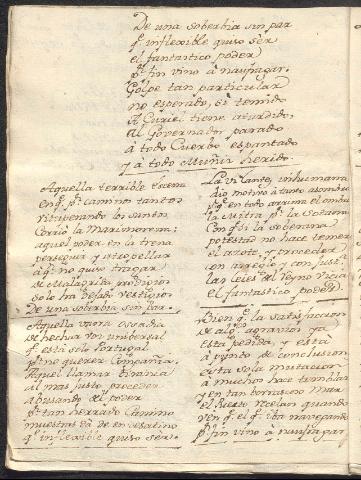 De una soberbia sin par
q.e inflexible quiso sèr
el fantastico poder
p.r fin vino à naufragar.
Golpe tan particular
no esperado, ni temido
A Curiel tiene aturdido,
Al Governador parado
à todo Cuerbo espantado
y à todo Muñiz herido.
Aquella terrible Escena
en q.e p.r caminos tantos
vituperando los Santos
Corriò la Marimorena:
aquel poder en la trena
perseguir y atropellar
à q.n no quiso tragar
su Malagrida provision
solo ha dejado vestigios
De una soberbia sin par.
Aquella vana osadia
de hechura tan universal
q.e esta solo Portugal
p.r no querer Compañia.
Aquel llamar tirania
al mas justo proceder
abusando del poder
p.r tan herrado Camino
muestras dà de un desatino
q.e inflexible quiso sèr.
La vil ante, inhumana
dio motivo à tanto asombro
p.r q.e en todo arrima el ombro
la Mitra p.r la Sotana
Con q.e si la soberana
potestad no hace temer
el azote, y proceder
con arreglo y con justi.
las leies del Reyno vicia
el fantastico poder.
Bien q.e la satisfaccion
de algo agravios ya
esta pedida, y està
à punto de conclusion
esta sola mutacion
à muchos hace temblar
y en tan borrascoso mar
el Puerto recelan quando
ven q.e el q.e iba navegando
p.r fin vino à naufragar.